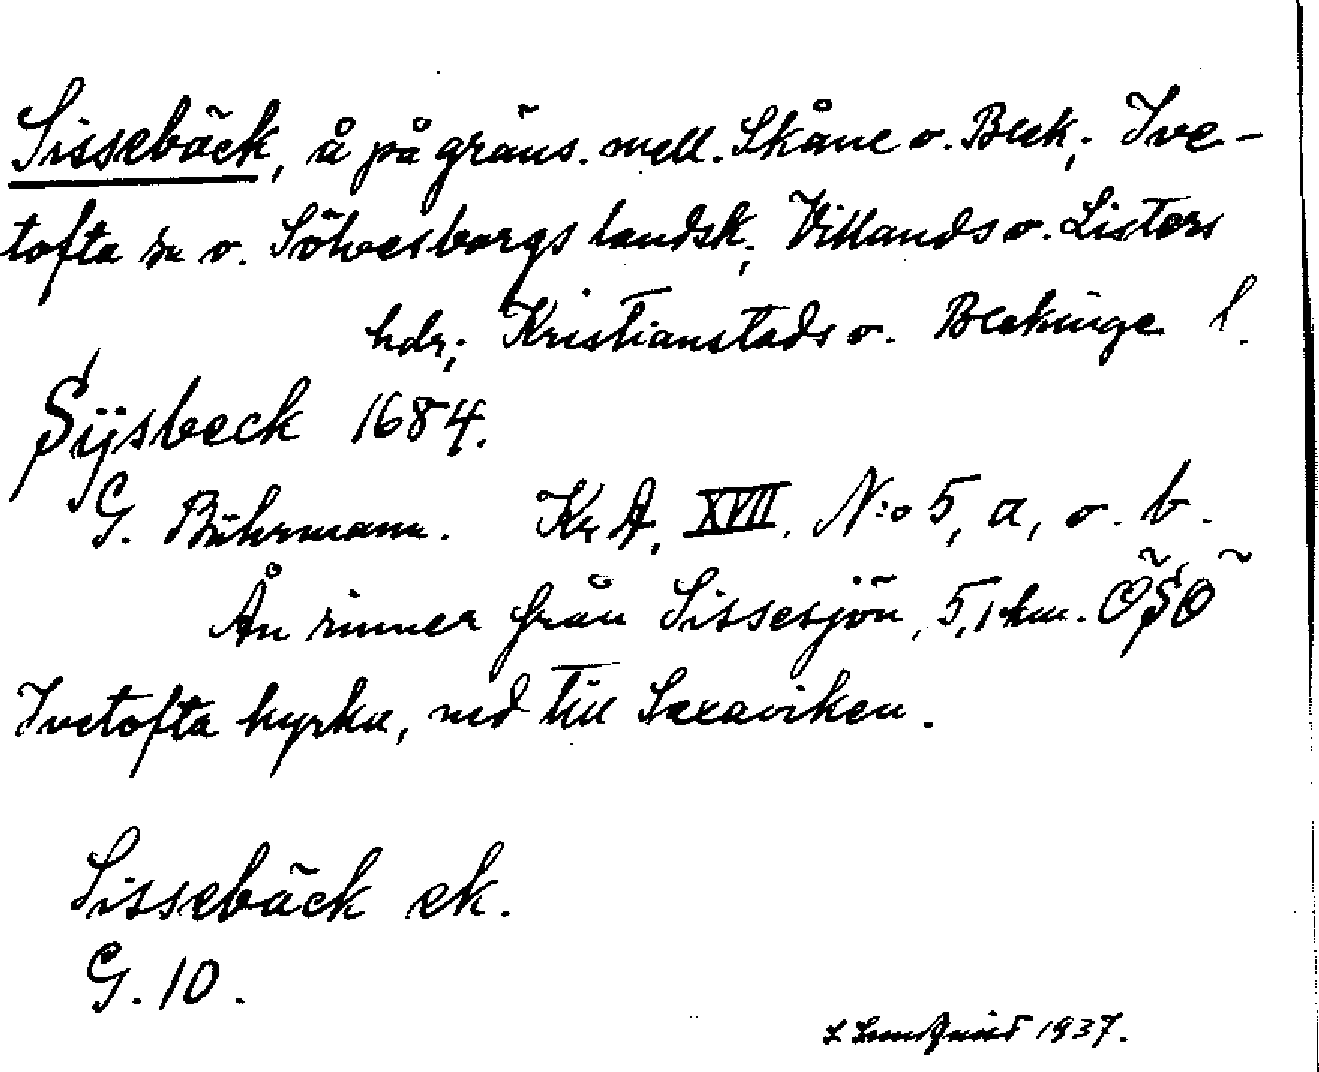 Sissebäck, å på gräns. mell. Skåne o. Blek; Ive-
tofta sn o. Sölvesborgs landsk, Villands o. Listers
hdr; Kristianstads o. Blekinge l.
Sÿsbeck 1684.
G. Buhrmann. Kr A, XVII, N:o 5, a, o. b.
Ån rinner från Sissesjön, 5,1 km. ÖSÖ
Ivetofta kyrka, ned till Sexaviken.
Sissebäck ek.
G. 10.
L Lundquist 1937.